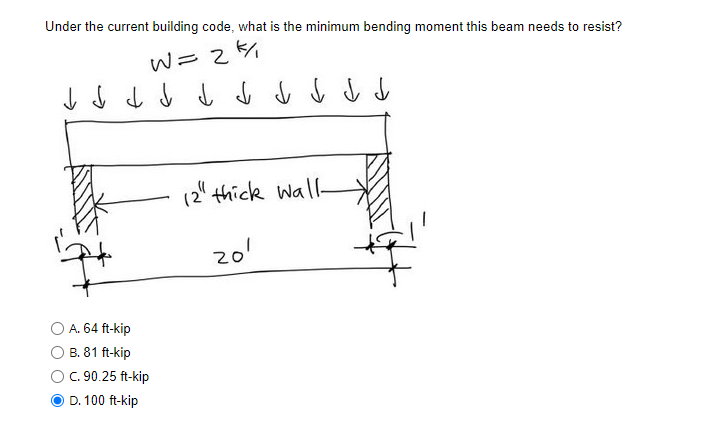 Under the current building code, what is the minimum bending moment this beam needs to resist?
W = 2 k/1
12" thick wall
1'
1'
20'
A. 64 ft-kip
B. 81 ft-kip
C. 90.25 ft-kip
D. 100 ft-kip